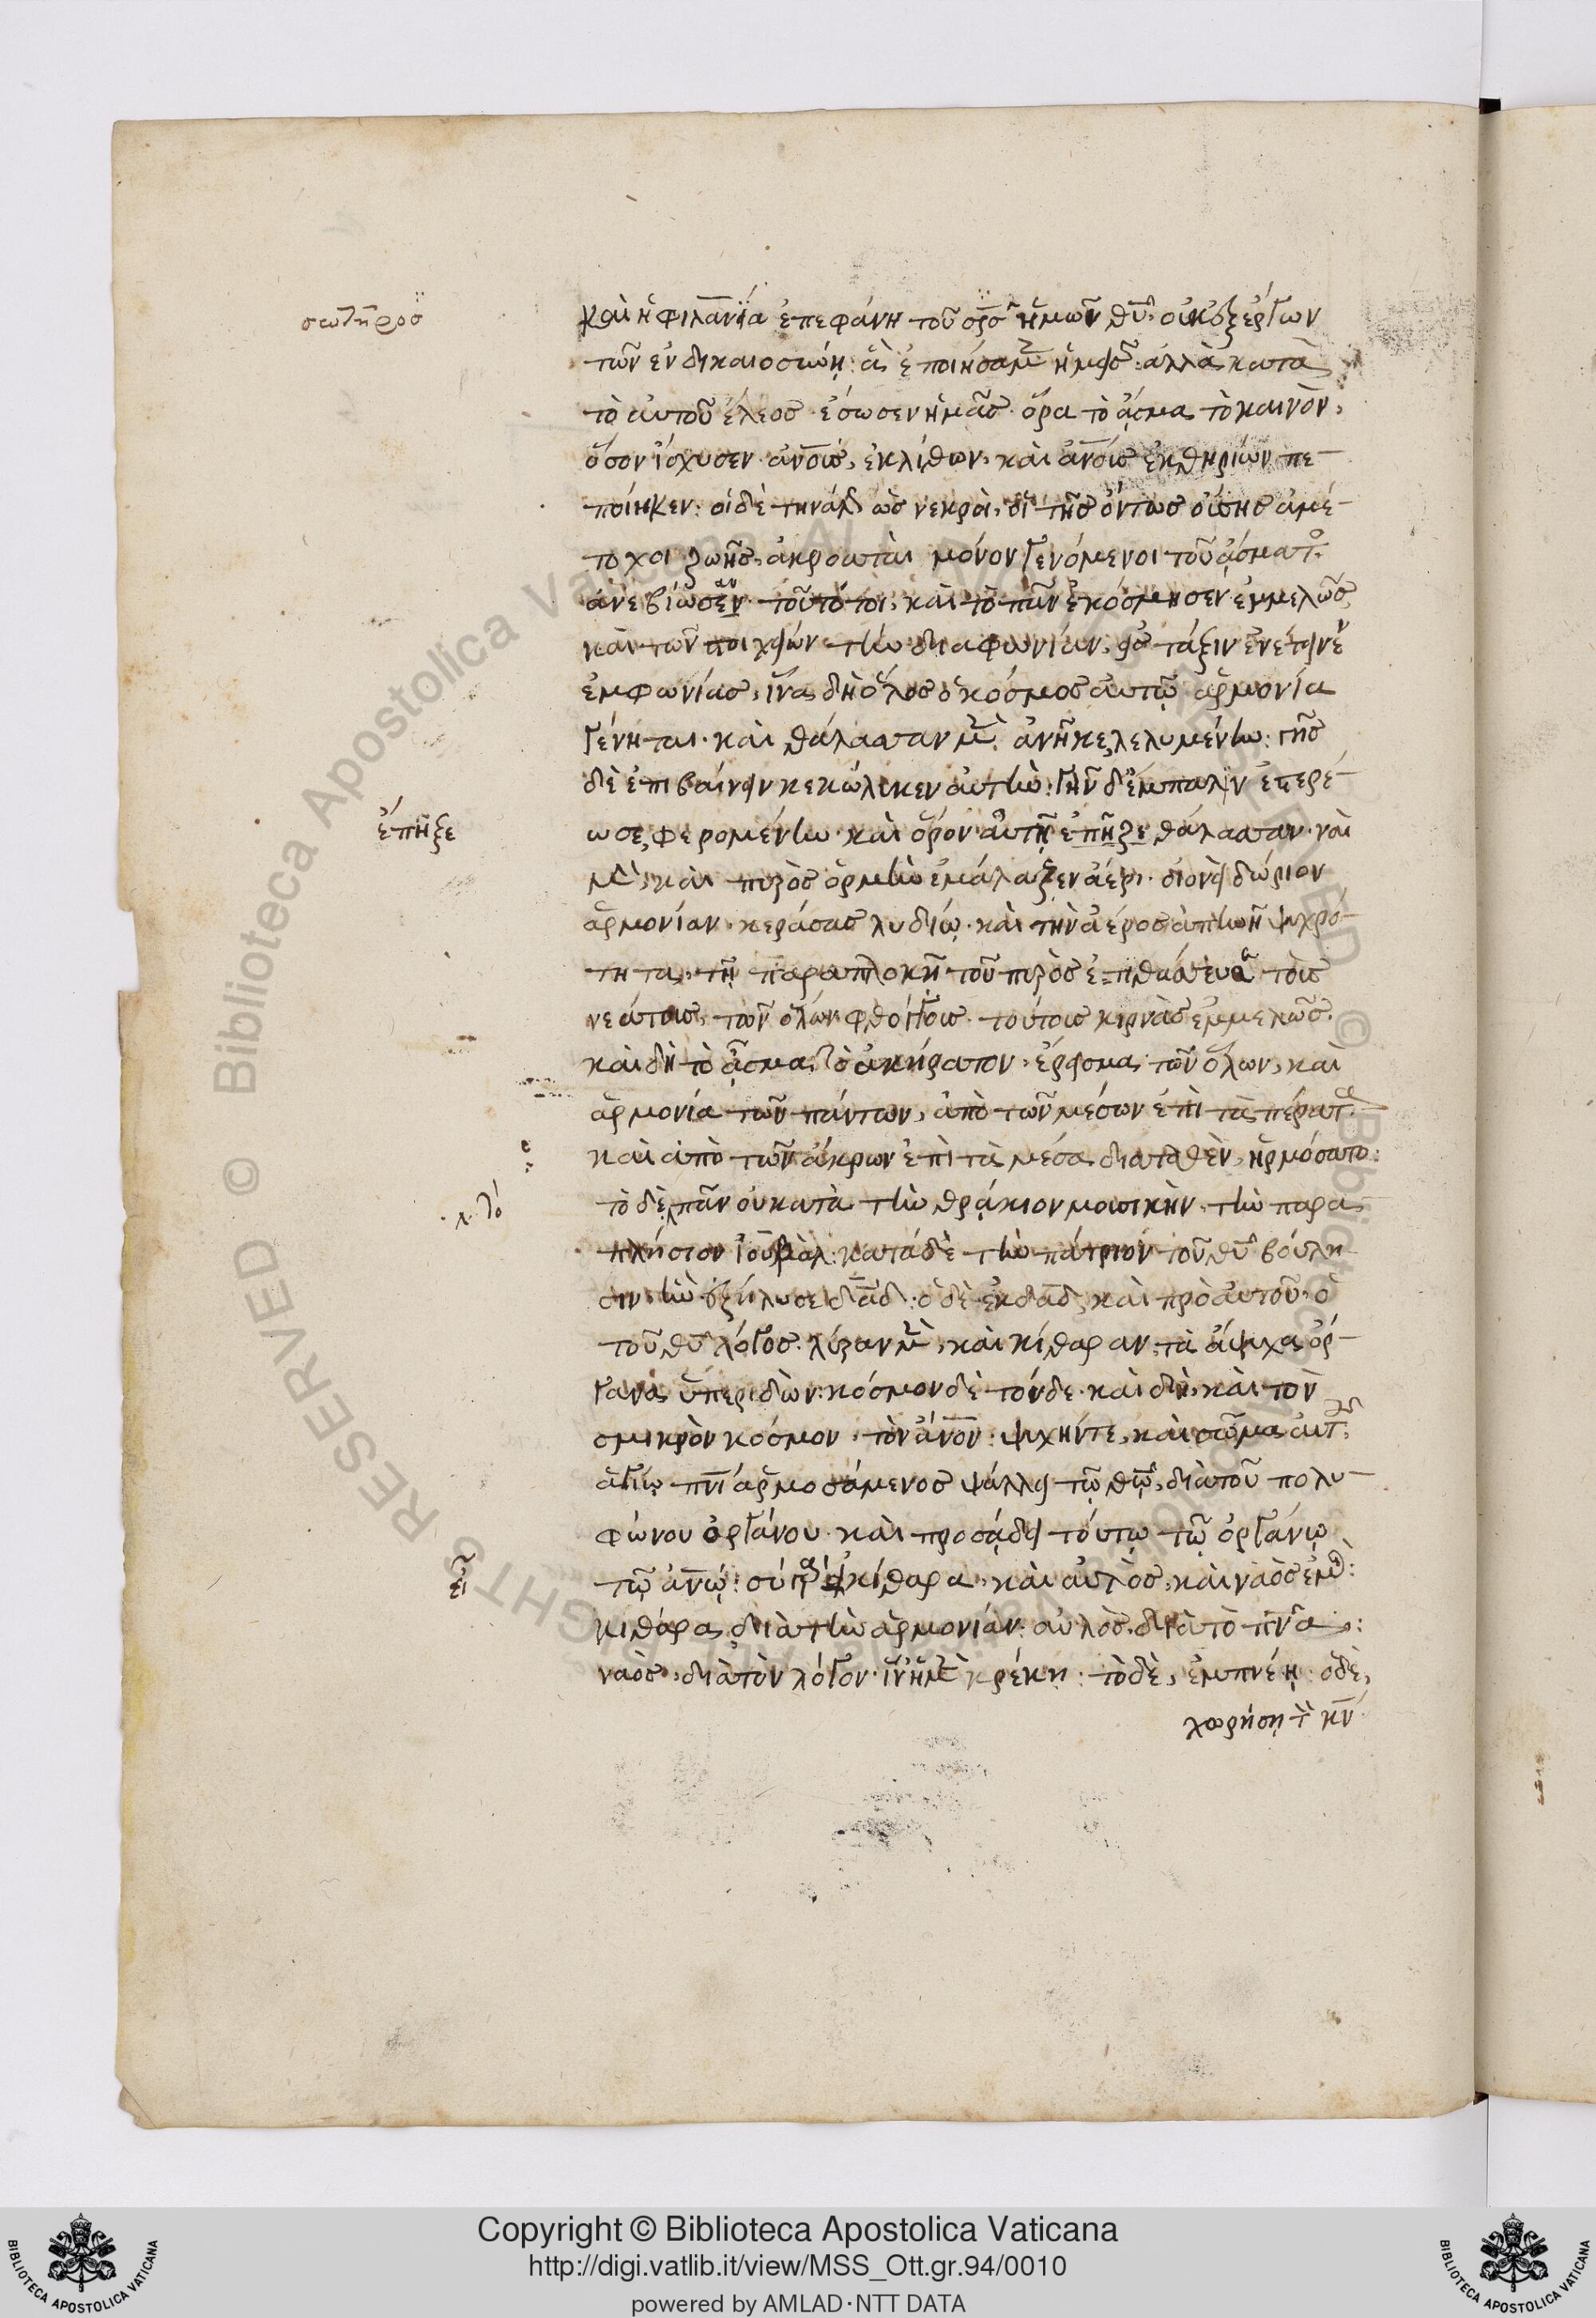 σωτῆρος
καὶ ἡ φιλανία ἐπεφάνη τοῦ σρς ἡμῶν θυ. οὐκ ἐξ ἔργων
τῶν ἐν δικαιοσύνῃ. ἃ ἐποιήσαμεν ἡμεῖς. ἀλλὰ κατὰ
τὸ αὐτοῦ ἔλεος ἔσωσεν ἡμᾶς. ὅρα τὸ ᾆσμα τὸ καινὸν,
ὅσον ἴσχυσεν. ἀνοις, ἐκ λίθων, καὶ ἀνοις ἐκ θηρίων πε-
ποίηκεν: οἱ δὲ τηνάλλως νεκροὶ, οἱ τῆς ὄντως οὔσης ἀμέ-
τοχοι ζωῆς, ἀκροαταὶ μόνον γενόμενοι τοῦ ᾄσματος.
ἀνεβίωσαν. τοῦτό τοι, καὶ τὸ πᾶν ἐκόσμησεν ἐμμελῶς,
καὶ τῶν στοιχείων τὴν διαφωνίαν, εἰς τάξιν ἐνέτεινεν
ἐμφωνίας, ἵνα δὴ ὅλος ὁ κόσμος αὐτῷ ἁρμονία
γένηται. καὶ θάλατταν μὲν ἀνῆκε λελυμένην. γῆς
δὲ ἐπιβαίνειν κεκώλυκεν αὐτήν. γῆν δ' ἔμπαλιν ἐστερέ-
ἔπηξε
ωσε φερομένην. καὶ ὅρον αὐτῇ ἔπηξε θάλατταν. ναὶ
μὴν καὶ πυρὸς ὁρμὴν ἐμάλαξεν ἀέρι. οἱονεὶ δώριον
ἁρμονίαν κεράσας λυδίῳ. καὶ τὴν ἀέρος ἀπηνῆ ψυχρό-
τητα, τῇ παραπλοκῇ τοῦ πυρὸς ἐτιθάσευεν τοὺς
νεάτους τῶν ὅλων φθόγγους τούτους κιρνὰς ἐμμελῶς.
καὶ δὴ τὸ ᾆσμα τὸ ἀκήρατον. ἔρεισμα τῶν ὅλων, καὶ
ἁρμονία τῶν πάντων, ἀπὸ τῶν μέσων ἐπὶ τὰ πέρατα
καὶ ἀπὸ τῶν ἄκρων ἐπὶ τὰ μέσα διαταθὲν, ἡρμόσατο:
τὸ
τὸ δὲ πᾶν οὐ κατὰ τὴν θρᾴκιον μουσικὴν τὴν παρα
πλήσιον Ἰουβάλ: κατὰ δὲ τὴν πάτριον τοῦ θυ βούλη
σιν ἣν ἐζήλωσε δαδ. ὁ δὲ ἐκ δαδ, καὶ πρὸ αὐτοῦ. ὁ
τοῦ θυ λόγος. λύραν μὲν, καὶ κιθάραν, τὰ ἄψυχα ὄρ-
γανα ὑπεριδών: κόσμον δὲ τόνδε. καὶ δὴ, καὶ τὸν
σμικρὸν κόσμον. τὸν ἄνον. ψυχήν τε, καὶ σῶμα αὐτοῦ,
ἁγίῳ πνι ἁρμοσάμενος ψάλλει τῷ θῷ, διὰ τοῦ πολυ-
φώνου ὀργάνου. καὶ προσᾴδει τούτῳ τῷ ὀργάνῳ
εἶ
τῷ ἀνῳ. σὺ γὰρ εἶ κιθάρα, καὶ αὐλὸς, καὶ ναὸς ἐμός:
κιθάρα, διὰ τὴν ἁρμονίαν. αὐλὸς, διὰ τὸ πνα:
ναὸς, διὰ τὸν λόγον. ἵν' ἡ μὲν κρέκῃ. τὸ δὲ, ἐμπνέῃ. ὁ δὲ,
χωρήσῃ τὸν κν
Copyright © Biblioteca Apostolica Vaticana
http://digi.vatlib.it/view/MSS_Ott.gr.94/0010
powered by AMLAD·NTT DATA